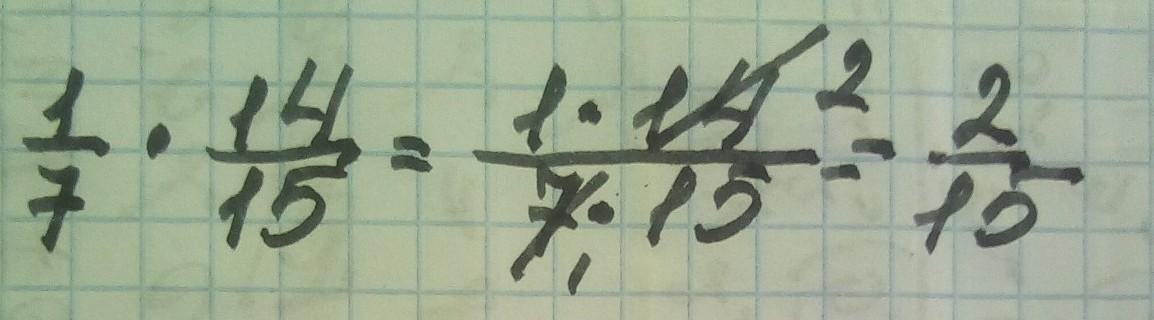 1/7 · 14/15 = 1 · 14 2/7 1 · 15 = 2/15